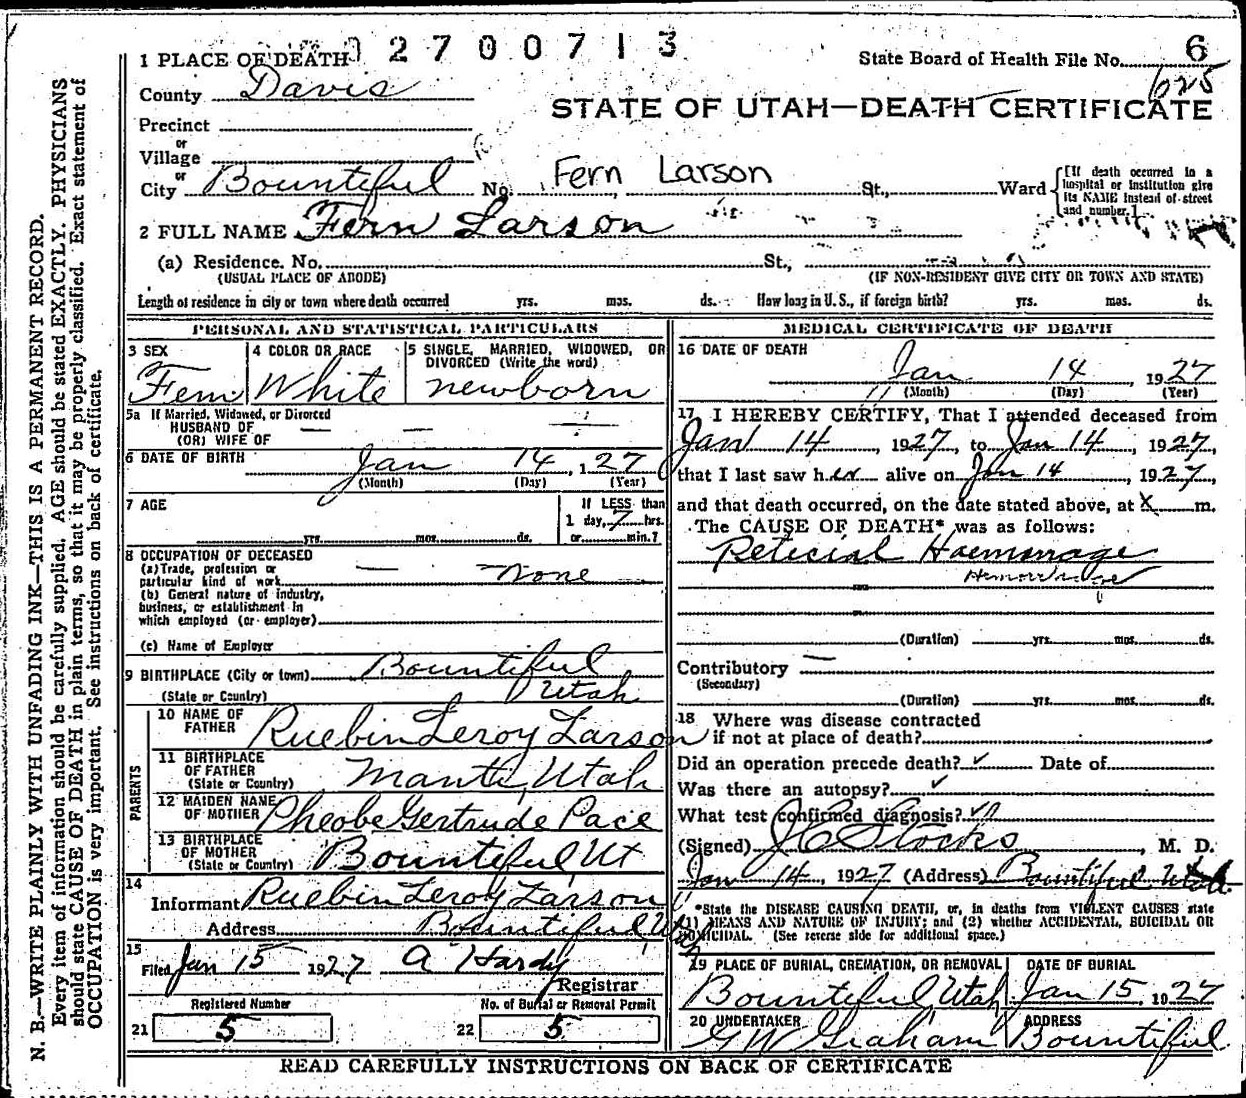 1 PLACE OF DEATH 02700713
State Board of Health File No. 6
625
County Davis
STATE OF UTAH—DEATH CERTIFICATE
Precinct
or
Village
or
City Bountiful No. Fern Larson St., Ward
[If death occurred in a hospital or institution give its NAME instead of street and number.]
2 FULL NAME Fern Larson
(a) Residence. No. St.,
(USUAL PLACE OF ABODE) (IF NON-RESIDENT GIVE CITY OR TOWN AND STATE)
Length of residence in city or town where death occurred yrs. mos. ds. How long in U. S., if foreign birth? yrs. mos. ds.
PERSONAL AND STATISTICAL PARTICULARS
3 SEX
Fem
4 COLOR OR RACE
White
5 SINGLE, MARRIED, WIDOWED, OR
DIVORCED (Write the word)
newborn
5a If Married, Widowed, or Divorced
HUSBAND OF
(OR) WIFE OF
6 DATE OF BIRTH Jan 14, 1927
(Month) (Day) (Year)
7 AGE
yrs. mos. ds.
If LESS than
1 day, 7 hrs.
or min.?
8 OCCUPATION OF DECEASED
(a) Trade, profession or
particular kind of work None
(b) General nature of industry,
business, or establishment in
which employed (or employer)
(c) Name of Employer
9 BIRTHPLACE (City or town) Bountiful
(State or Country) Utah
PARENTS
10 NAME OF
FATHER Ruebin Leroy Larson
11 BIRTHPLACE
OF FATHER
(State or Country) Manti, Utah
12 MAIDEN NAME
OF MOTHER Pheobe Gertrude Pace
13 BIRTHPLACE
OF MOTHER
(State or Country) Bountiful, Ut
14
Informant Ruebin Leroy Larson
Address Bountiful, Utah
15
Filed Jan 15 1927 A Hardy
Registrar
Registered Number No. of Burial or Removal Permit
21 5 22 5
MEDICAL CERTIFICATE OF DEATH
16 DATE OF DEATH
Jan 14, 1927
(Month) (Day) (Year)
17 I HEREBY CERTIFY, That I attended deceased from
Jan 14, 1927, to Jan 14, 1927,
that I last saw her alive on Jan 14, 1927,
and that death occurred, on the date stated above, at X m.
The CAUSE OF DEATH* was as follows:
Haemorrage
Hemorrhage
(Duration) yrs. mos. ds.
Contributory
(Secondary)
(Duration) yrs. mos. ds.
18 Where was disease contracted
if not at place of death?
Did an operation precede death? ✓ Date of
Was there an autopsy? ✓
What test confirmed diagnosis? ✓
(Signed) J C Stocks, M. D.
Jan 14, 1927 (Address) Bountiful Utah
*State the DISEASE CAUSING DEATH, or, in deaths from VIOLENT CAUSES state
(1) MEANS AND NATURE OF INJURY; and (2) whether ACCIDENTAL, SUICIDAL OR
HOMICIDAL. (See reverse side for additional space.)
19 PLACE OF BURIAL, CREMATION, OR REMOVAL
Bountiful, Utah
DATE OF BURIAL
Jan 15, 1927
20 UNDERTAKER
G W Graham
ADDRESS
Bountiful
READ CAREFULLY INSTRUCTIONS ON BACK OF CERTIFICATE
N. B.—WRITE PLAINLY WITH UNFADING INK—THIS IS A PERMANENT RECORD.
Every item of information should be carefully supplied. AGE should be stated EXACTLY. PHYSICIANS
should state CAUSE OF DEATH in plain terms, so that it may be properly classified. Exact statement of
OCCUPATION is very important. See instructions on back of certificate.